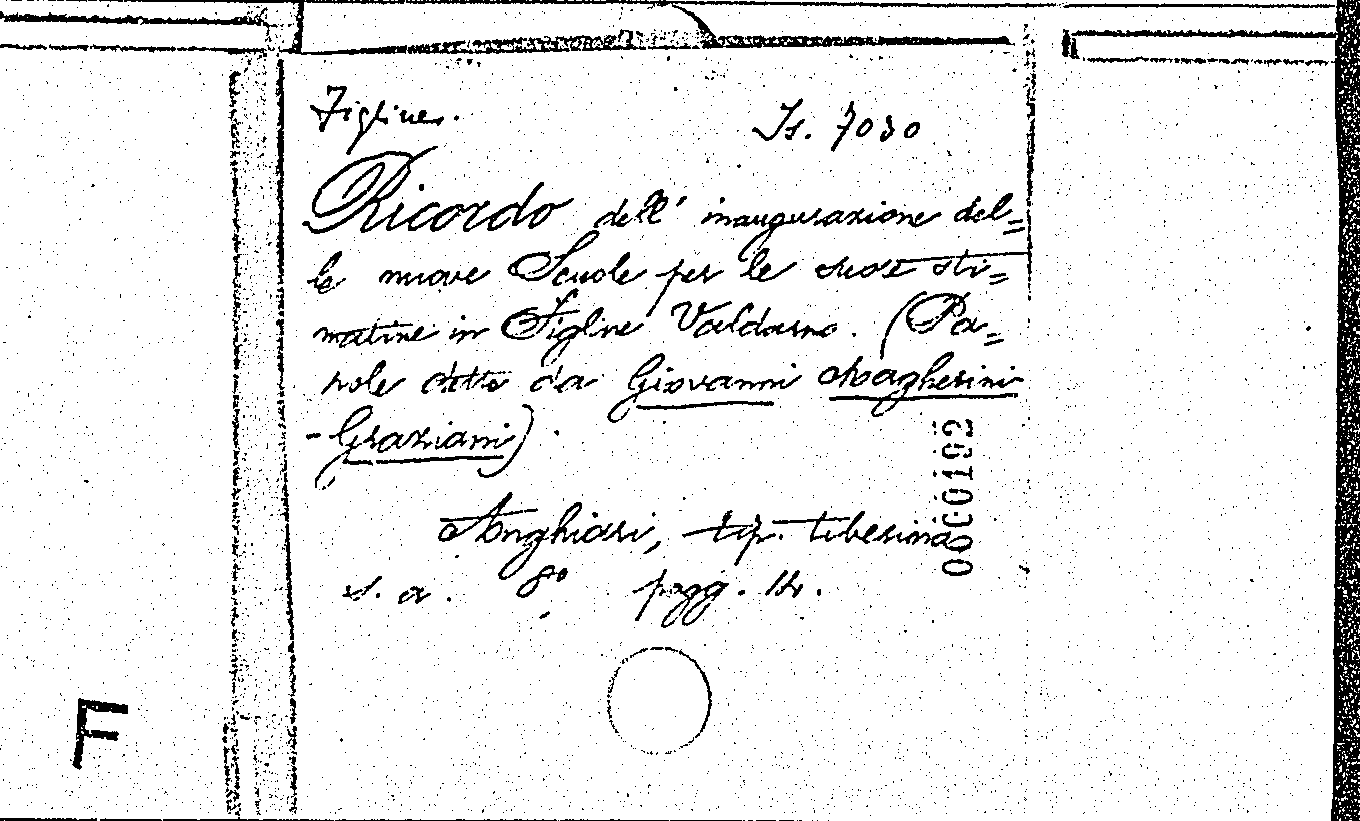 Figline. It. 7030
Ricordo dell' inaugurazione del=
le nuove Scuole per le suore sti=
matine in Figline Valdarno. (Pa=
role dette da Giovanni Magherini
-Graziani).
Anghiari, tip. tiberina
s. a. 8° pagg. 14.
0000102
F